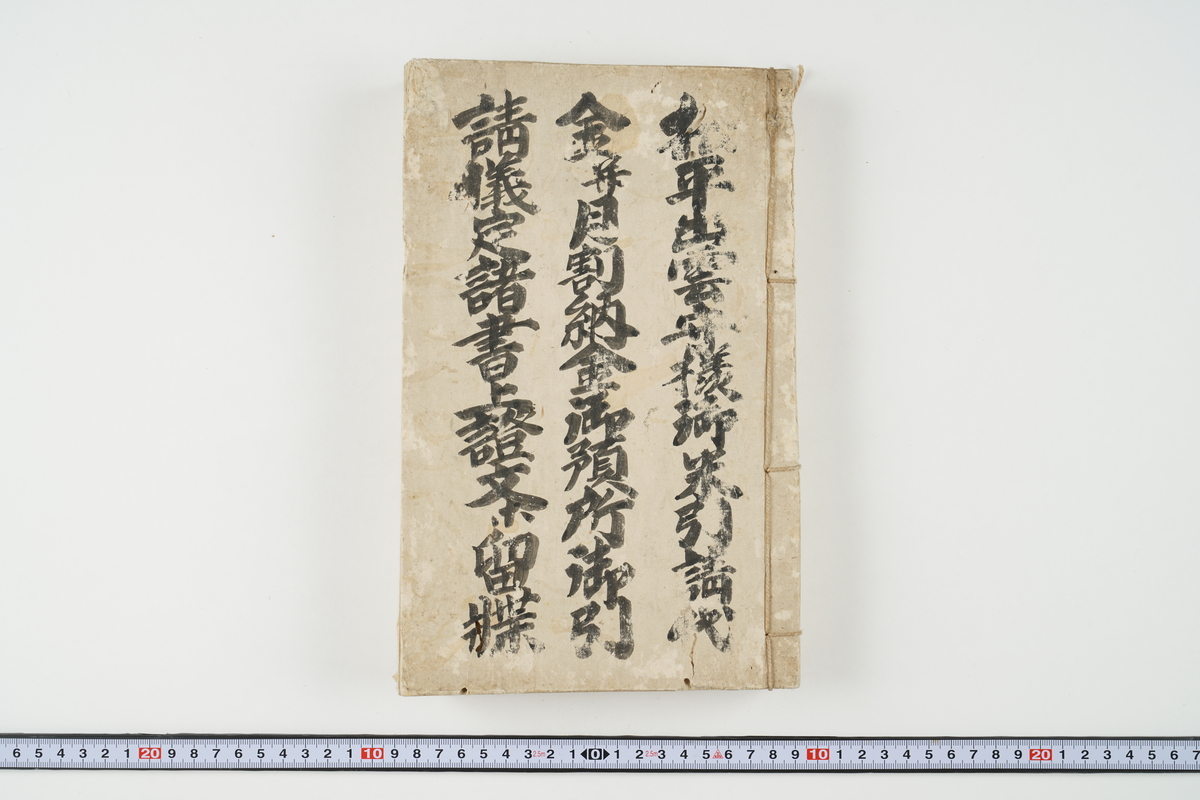 松平出雲守様御米引請代
金并月割納金御預所御引
請議定諸書上證文留牒
6 5 4 3 2 1 20 9 8 7 6 5 4 3 2 1 10 9 8 7 6 5 4 3 2.5m 2 1 0 1 2 2.5m 3 4 5 6 7 8 9 10 1 2 3 4 5 6 7 8 9 20 1 2 3 4 5 6 7